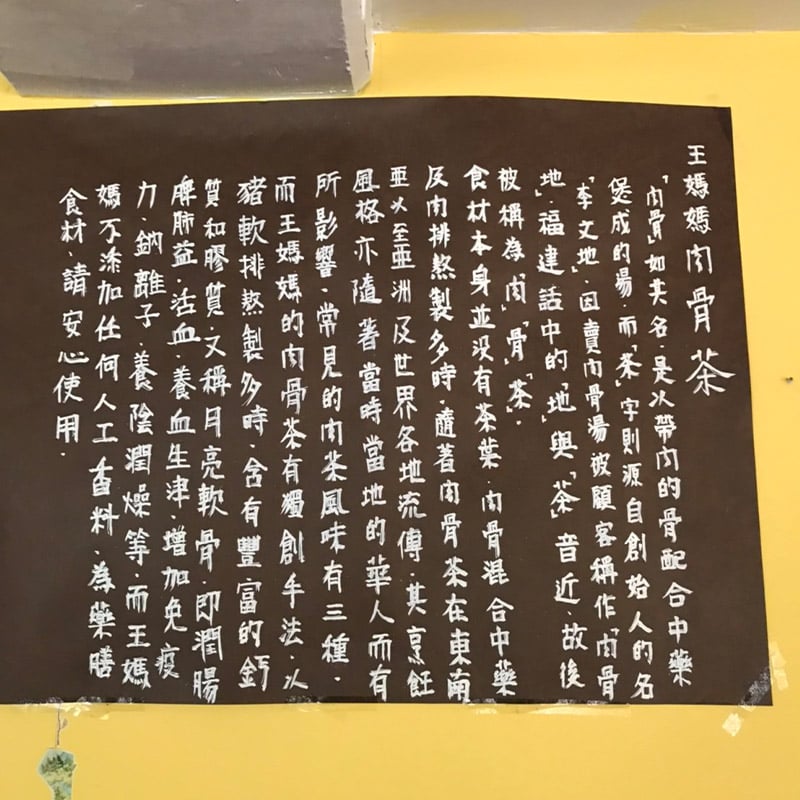 王媽媽肉骨茶
「肉骨」如其名、是以帶肉的骨配合中藥
煲成的湯、而「茶」字則源自創始人的名
「李文地」、因賣肉骨湯被顧客稱作「肉骨
地」、福建話中的「地」與「茶」音近、故後
被稱為「肉」「骨」「茶」.
食材本身並沒有茶葉、肉骨混合中藥
及肉排熬製多時、隨著肉骨茶在東南
亞以至亞洲及世界各地流傳、其烹飪
風格亦隨著當時當地的華人而有
所影響、常見的肉茶風味有三種.
而王媽媽的肉骨茶有獨創手法、以
豬軟排熬製多時、含有豐富的鈣
質和膠質、又稱月亮軟骨、即潤腸
脾肺益、活血、養血生津、增加免疫
力、鈉離子、養陰潤燥等、而王媽
媽不添加任何人工香料、為藥膳
食材、請安心使用.